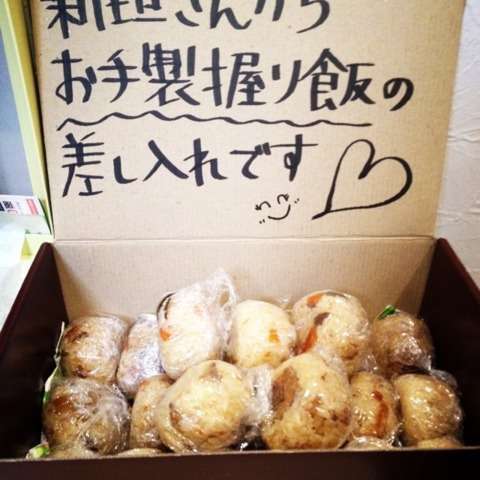 新垣さんから
お手製握り飯の
差し入れです